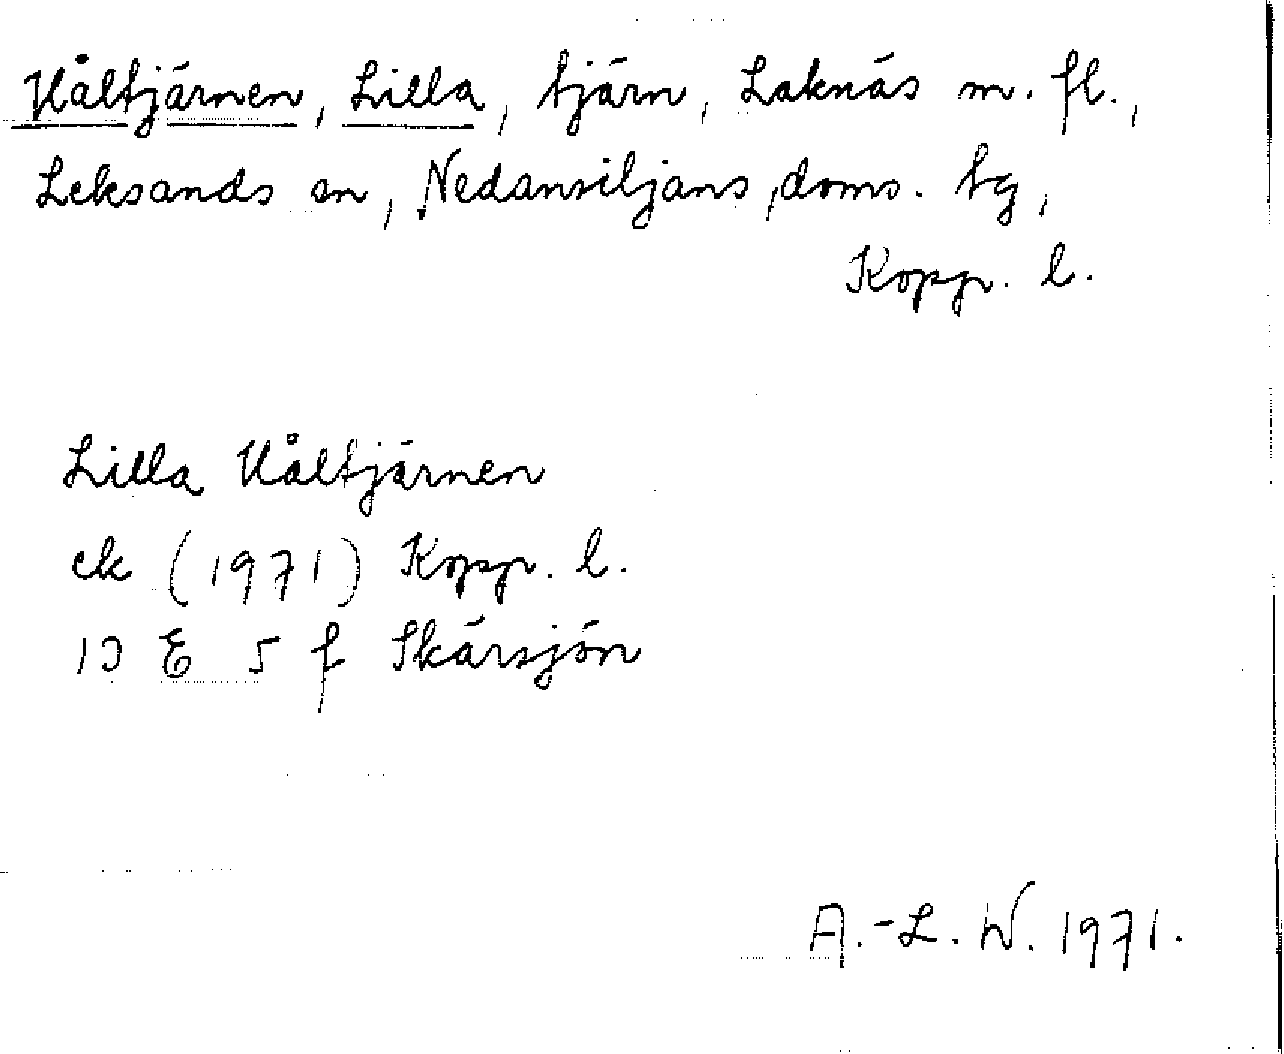 Våltjärnen, Lilla, tjärn, Laknäs m. fl.,
Leksands sn, Nedansiljans doms. tg,
Kopp. l.
Lilla Våltjärnen
ek (1971) Kopp. l.
13 E 5 f Skärsjön
A.-L. W. 1971.